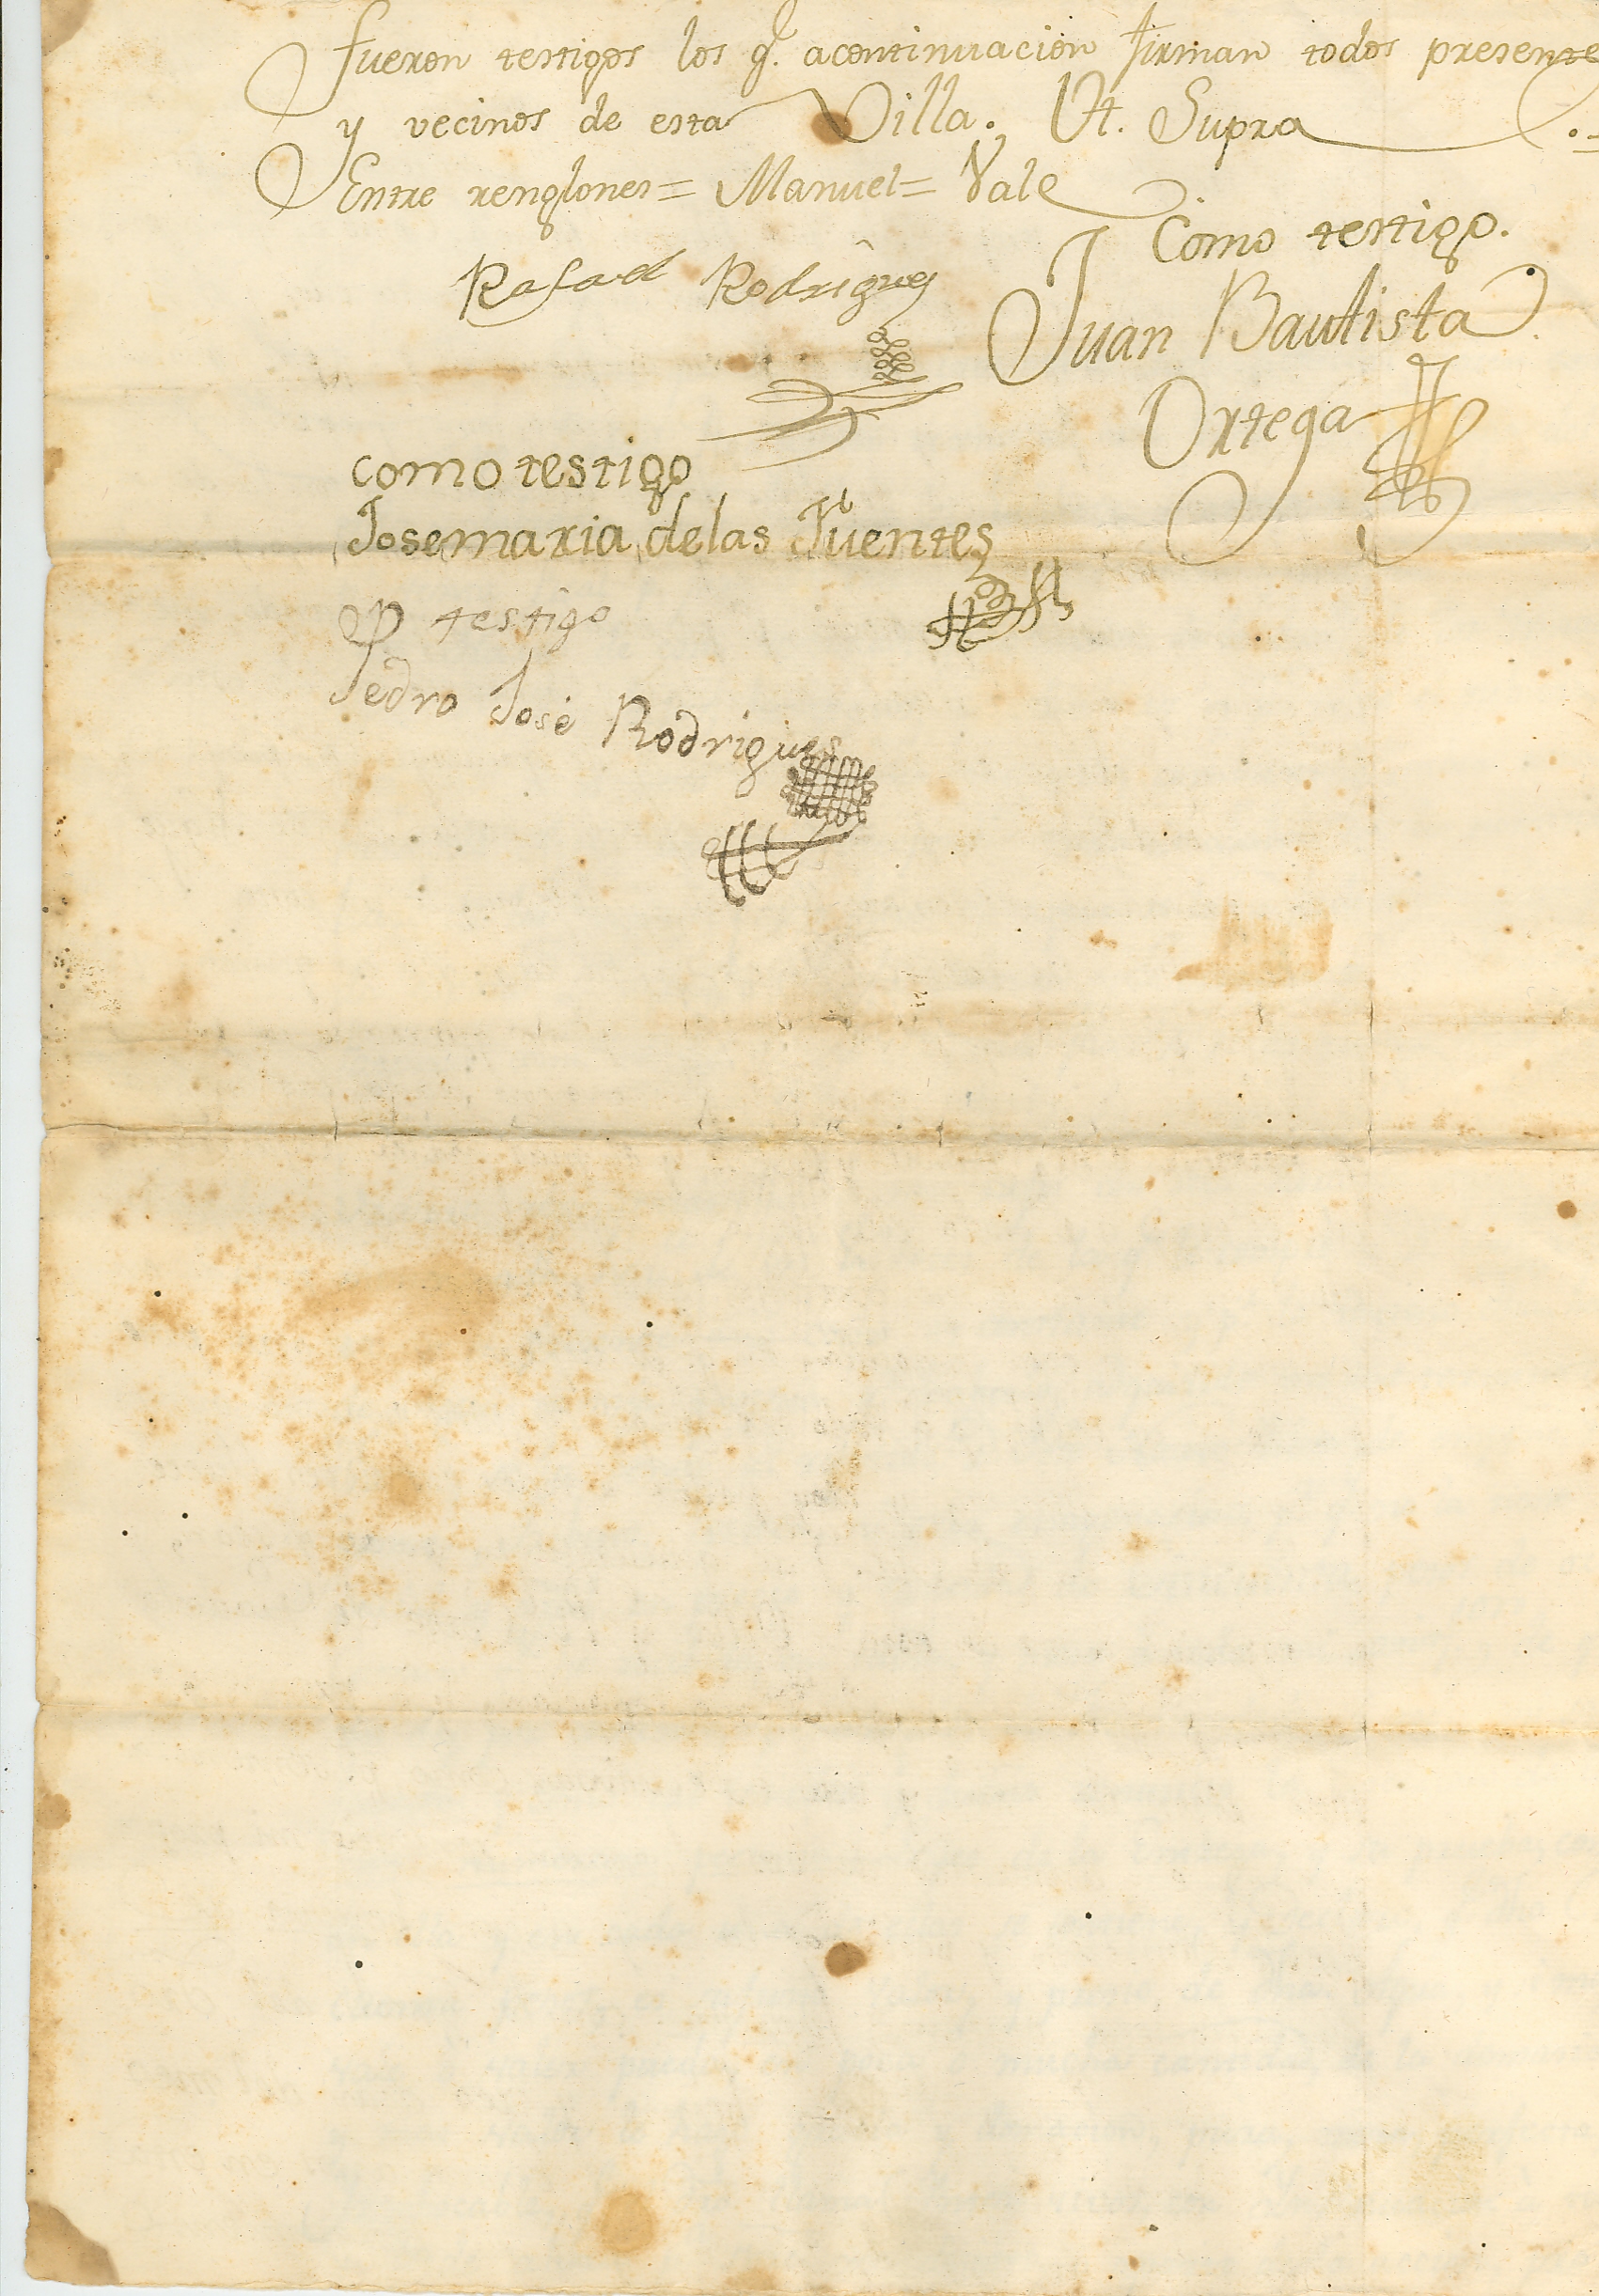 fueron testigos los q.e acontinuacion firman todos presente
y vecinos de esta Villa. Ut. Supra
Entre renglones = Manuel = Vale
Como testigo.
Rafael Rodriguez
Juan Bautista
Ortega
como testigo
Jose maria delas Fuentes
testigo
Pedro José Rodrigues